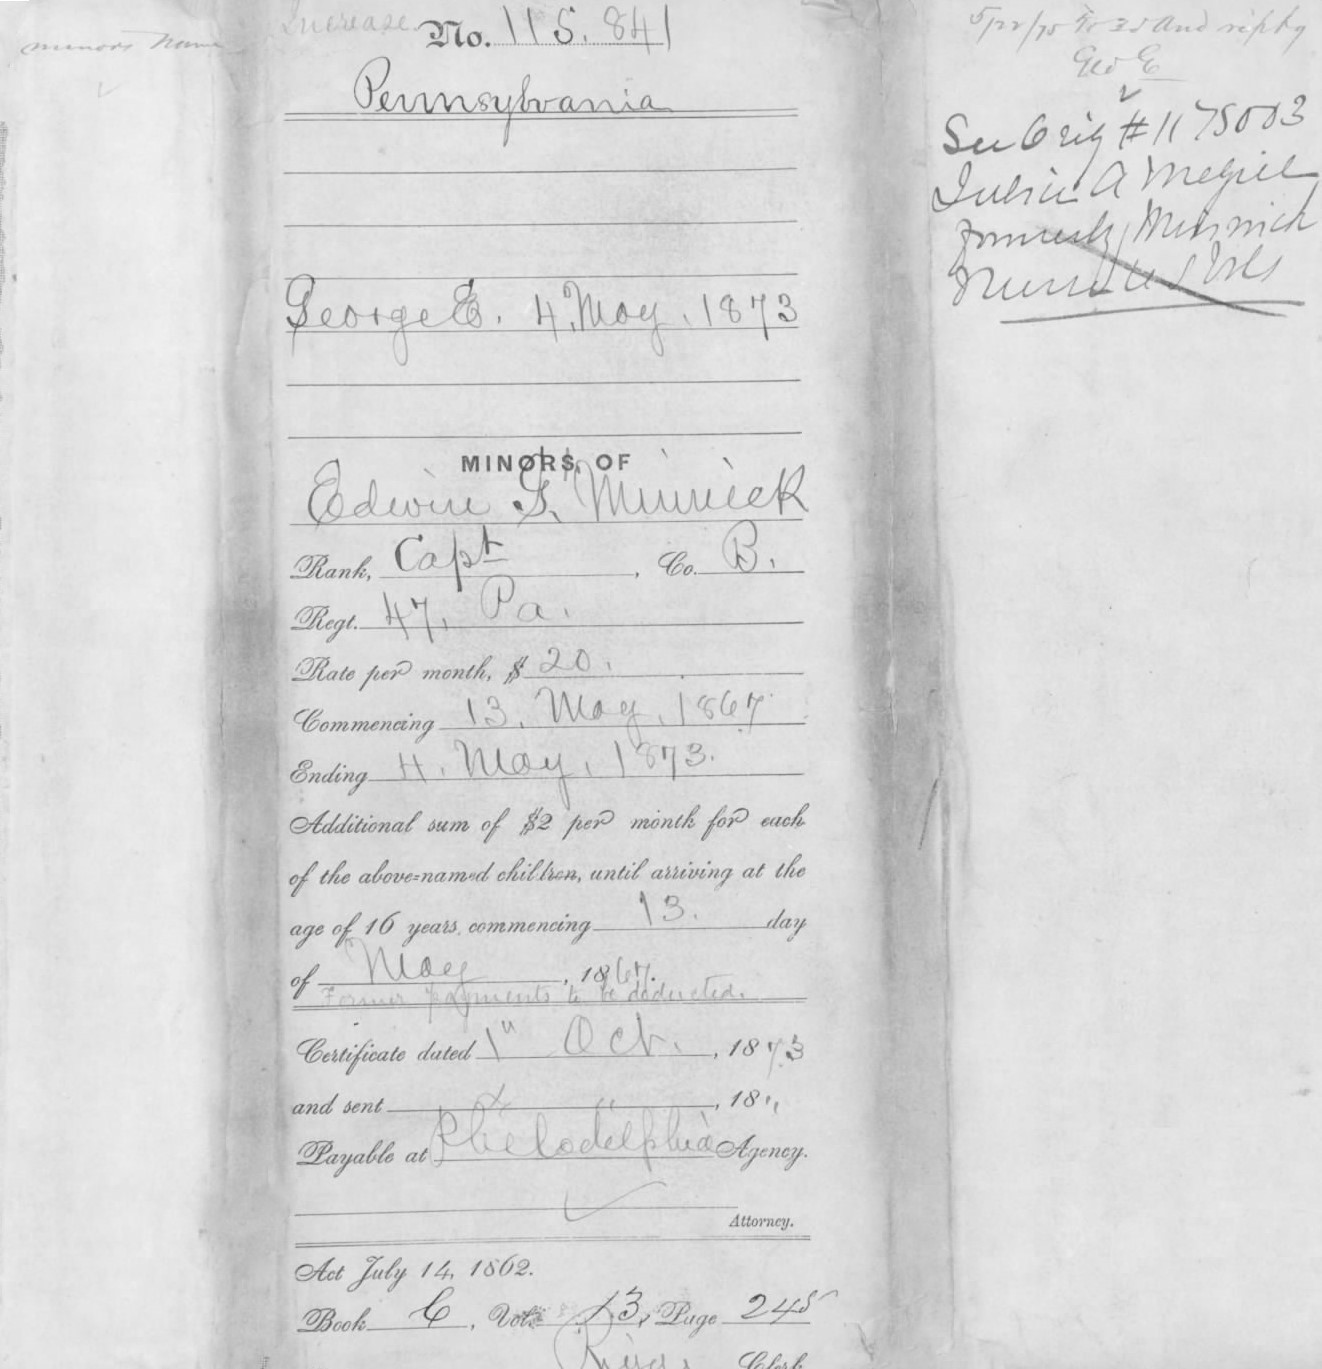 minors Name
Increase No. 115.841
Pennsylvania
George E. 4, May, 1873
MINORS, OF
Edwin G. Minnick
Rank, Capt, Co. B.
Regt. 47, Pa.
Rate per month, $ 20.
Commencing 13, May, 1867
Ending 4, May, 1873.
Additional sum of $2 per month for each
of the above-named children, until arriving at the
age of 16 years, commencing 13. day
of May, 1867.
Former payments to be deducted.
Certificate dated 1" Oct., 1873
and sent " , 18"
Payable at Philadelphia Agency.
Attorney.
Act July 14, 1862.
Book C, Vol. 13, Page 245
Clerk
5/22/75 and
Geo E
See Orig # 1175003
A Megill
formerly Minnick